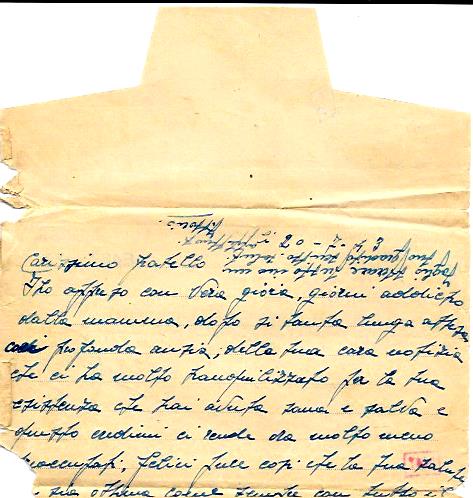 Carissimo fratello
Ho appreso con vera gioia, giorni addietro
dalla mamma, dopo sì tanta lunga attesa
profonda ansia, della tua cara notizia
che ci ha molto tranquilizzato per la tua
esistenza che hai avuta sana e salva e
questo credimi ci rende da molto meno
preoccupati, felici pure così che la tua salute
sia ottima come sempre con tutto il